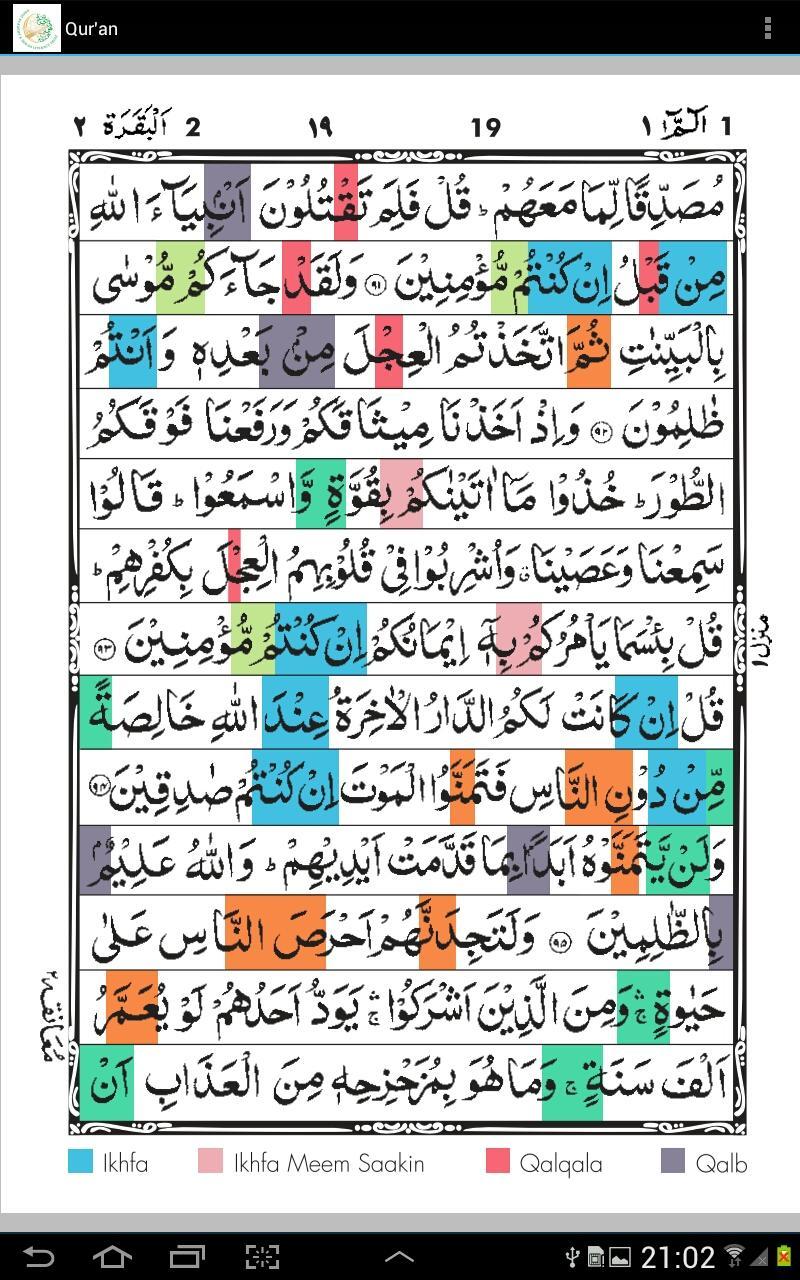 Qur'an
٢ اَلْبَقَرَة 2 ١٩ 19 ١ الٓمّٓ 1
مُصَدِّقًا لِّمَا مَعَهُمْ ؕ قُلْ فَلِمَ تَقْتُلُوْنَ اَنْۢبِيَآءَ اللّٰهِ
مِنْ قَبْلُ اِنْ كُنْتُمْ مُّؤْمِنِيْنَ ﴿۹۱﴾ وَلَقَدْ جَآءَكُمْ مُّوْسٰى
بِالْبَيِّنٰتِ ثُمَّ اتَّخَذْتُمُ الْعِجْلَ مِنْۢ بَعْدِهٖ وَ اَنْتُمْ
ظٰلِمُوْنَ ﴿۹۲﴾ وَاِذْ اَخَذْنَا مِيْثَاقَكُمْ وَرَفَعْنَا فَوْقَكُمُ
الطُّوْرَ ؕ خُذُوْا مَاۤ اٰتَيْنٰكُمْ بِقُوَّةٍ وَّاسْمَعُوْا ؕ قَالُوْا
سَمِعْنَا وَعَصَيْنَا ۗ وَاُشْرِبُوْا فِىْ قُلُوْبِهِمُ الْعِجْلَ بِكُفْرِهِمْ ؕ
قُلْ بِئْسَمَا يَاْمُرُكُمْ بِهٖۤ اِيْمَانُكُمْ اِنْ كُنْتُمْ مُّؤْمِنِيْنَ ﴿۹۳﴾
منزل ١
قُلْ اِنْ كَانَتْ لَكُمُ الدَّارُ الْاٰخِرَةُ عِنْدَ اللّٰهِ خَالِصَةً
مِّنْ دُوْنِ النَّاسِ فَتَمَنَّوُا الْمَوْتَ اِنْ كُنْتُمْ صٰدِقِيْنَ ﴿۹۴﴾
وَلَنْ يَّتَمَنَّوْهُ اَبَدًاۢ بِمَا قَدَّمَتْ اَيْدِيْهِمْ ؕ وَاللّٰهُ عَلِيْمٌۢ
بِالظّٰلِمِيْنَ ﴿۹۵﴾ وَلَتَجِدَنَّهُمْ اَحْرَصَ النَّاسِ عَلٰى
حَيٰوةٍ ۛۚ وَمِنَ الَّذِيْنَ اَشْرَكُوْا ۛۚ يَوَدُّ اَحَدُهُمْ لَوْ يُعَمَّرُ
مُعَانَقه ٢
اَلْفَ سَنَةٍ ۚ وَمَا هُوَ بِمُزَحْزِحِهٖ مِنَ الْعَذَابِ اَنْ
Ikhfa Ikhfa Meem Saakin Qalqala Qalb
21:02